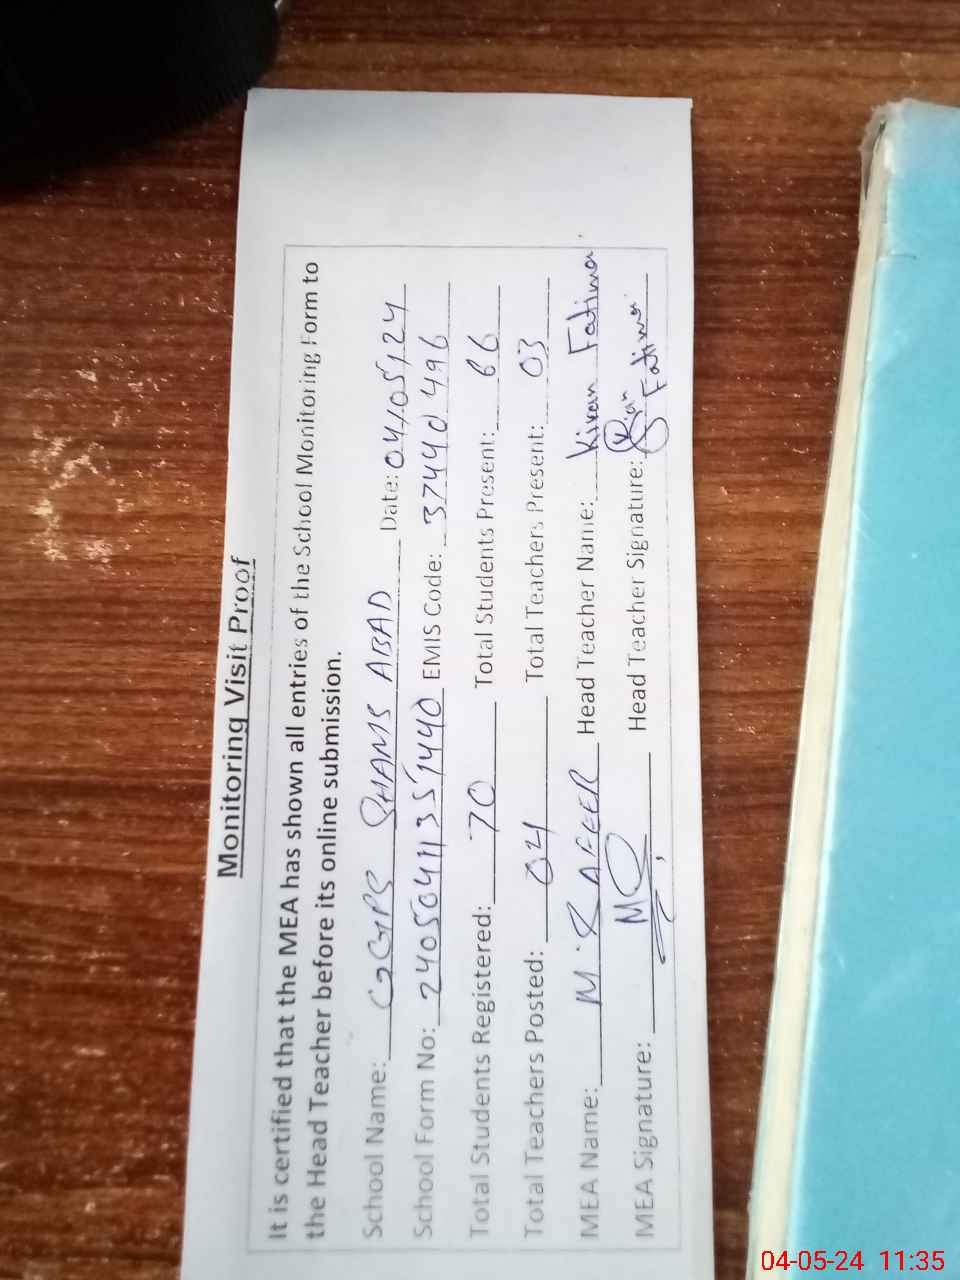 Monitoring Visit Proof
It is certified that the MEA has shown all entries of the School Monitoring Form to
the Head Teacher before its online submission.
School Name: GGPS SHAMS ABAD Date: 04/05/24
School Form No: 240504113 440 EMIS Code: 37440496
Total Students Registered: 70 Total Students Present: 66
Total Teachers Posted: 04 Total Teachers Present: 03
MEA Name: M. Head Teacher Name: Kiran Fatima
MEA Signature: Head Teacher Signature: Kiran Fatima
04-05-24 11:35